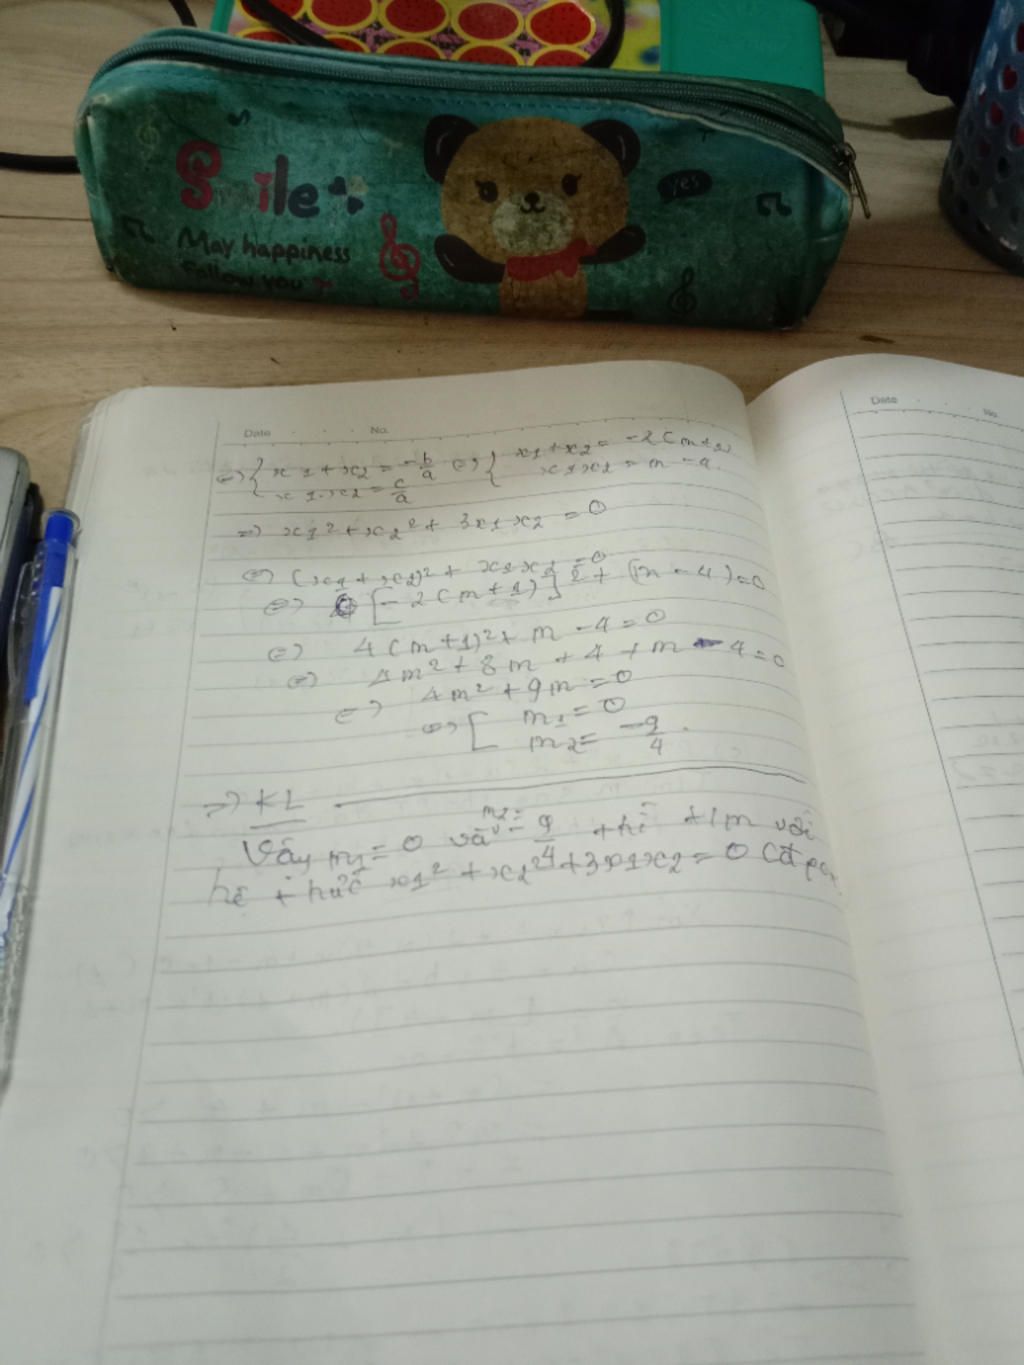 Smile
yes
May happiness
follow you
Date No.
Date No.
=> { x1+x2 = -b/a <=> { x1+x2 = -2(m+1)
x1.x2 = c/a x1x2 = m-4
=> x1²+x2²+ 3x1x2 = 0
<=> (x1+x2)²+ x1x2 = 0
<=> [-2(m+1)]²+ (m-4)=0
<=> 4(m+1)²+ m-4=0
<=> 4m²+8m+4+m-4=0
<=> 4m²+9m=0
<=> [ m1=0
m2= -9/4.
=> KL
Vậy m1= 0 và m2= -9/4 thì +1m với
hệ thức x1²+x2²+3x1x2=0